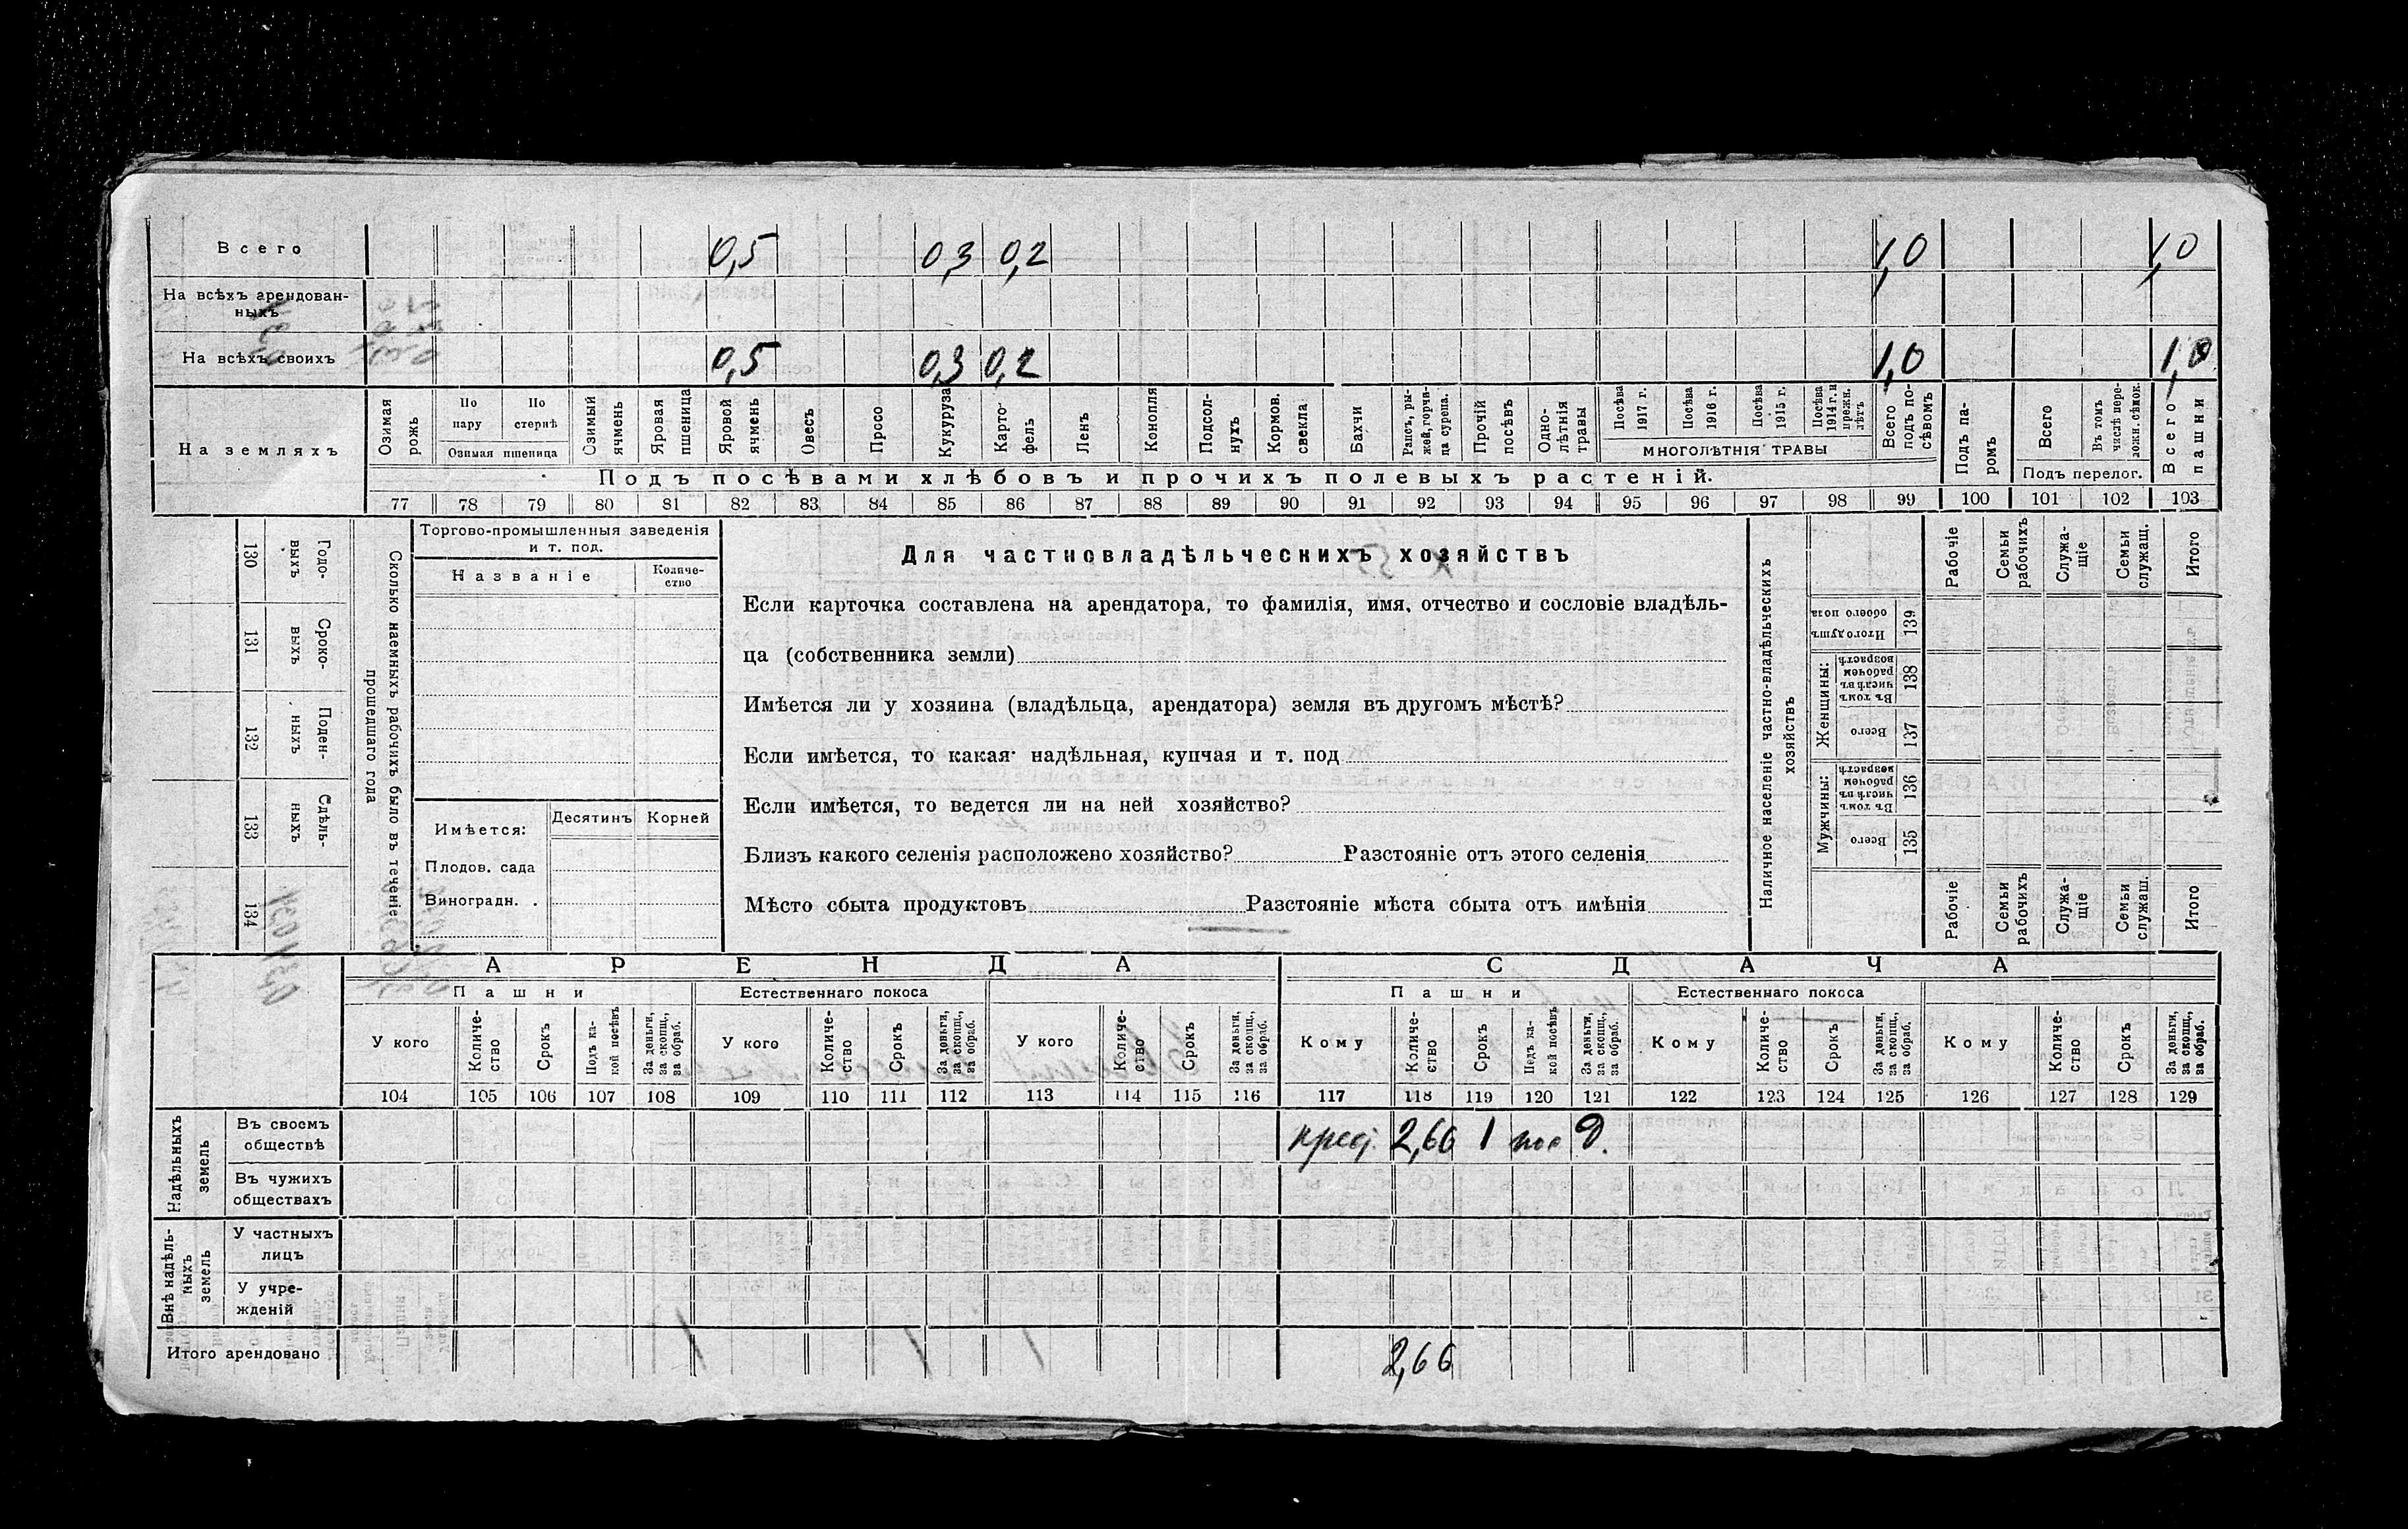 Всего 0,5 0,3 0,2 1,0 1,0
На всѣхъ арендован-
ныхъ
На всѣхъ своихъ 0,5 0,3 0,2 1,0 1,0
На земляхъ
Озимая рожь
По пару
По стернѣ
Озимая пшеница
Озимый ячмень
Яровая пшеница
Яровой ячмень
Овесъ
Просо
Кукуруза
Карто-
фель
Ленъ
Конопля
Подсол-
нухъ
Кормов.
свекла
Бахчи
Рапсъ, ры-
жей, горчи-
ца сурепа.
Прочій
посѣвъ
Одно-
лѣтнія
травы
Посѣва
1917 г.
Посѣва
1916 г.
Посѣва
1915 г.
Посѣва
1914 г. и
прежн.
лѣтъ
МНОГОЛѢТНІЯ ТРАВЫ
Всего
подъ по-
сѣвомъ
Подъ па-
ромъ
Всего
Въ томъ
числѣ пере-
ложн. сѣнок.
Подъ перелог.
Всего
пашни
Подъ посѣвами хлѣбовъ и прочихъ полевыхъ растеній.
77 78 79 80 81 82 83 84 85 86 87 88 89 90 91 92 93 94 95 96 97 98 99 100 101 102 103
130 Годо-
выхъ
131 Сроко-
выхъ
132 Поден-
ныхъ
133 Сдѣль-
ныхъ
134
Сколько наемныхъ рабочихъ было въ теченіе
прошедшаго года
Торгово-промышленныя заведенія
и т. под.
Названіе
Количе-
ство
Имѣется:
Десятинъ Корней
Плодов. сада
Виноградн. .
Для частновладѣльческихъ хозяйствъ
Если карточка составлена на арендатора, то фамилія, имя, отчество и сословіе владѣль-
ца (собственника земли)
Имѣется ли у хозяина (владѣльца, арендатора) земля въ другомъ мѣстѣ?
Если имѣется, то какая надѣльная, купчая и т. под
Если имѣется, то ведется ли на ней хозяйство?
Близъ какого селенія расположено хозяйство? Разстояніе отъ этого селенія
Мѣсто сбыта продуктовъ Разстояніе мѣста сбыта отъ имѣнія
Наличное населеніе частно-владѣльческихъ
хозяйствъ
Рабочіе
Семьи
рабочихъ
Служа-
щіе
Семьи
служащ.
Итого
Итого душъ
обоего пола
139
Женщины:
Въ томъ
числѣ въ
рабочемъ
возрастѣ
138
Всего
137
Мужчины:
Въ томъ
числѣ въ
рабочемъ
возрастѣ
136
Всего
135
Рабочіе
Семьи
рабочихъ
Служа-
щіе
Семьи
служащ.
Итого
АРЕНДА СДАЧА
Пашни Естественнаго покоса Пашни Естественнаго покоса
У кого
Количе-
ство
Срокъ
Подъ ка-
кой посѣвъ
За деньги,
за скопщ.,
за обраб.
У кого
Количе-
ство
Срокъ
За деньги,
за скопщ.,
за обраб.
У кого
Количе-
ство
Срокъ
За деньги,
за скопщ.,
за обраб.
Кому
Количе-
ство
Срокъ
Подъ ка-
кой посѣвъ
За деньги,
за скопщ.,
за обраб.
Кому
Количе-
ство
Срокъ
За деньги,
за скопщ.,
за обраб.
Кому
Количе-
ство
Срокъ
За деньги,
за скопщ.,
за обраб.
104 105 106 107 108 109 110 111 112 113 114 115 116 117 118 119 120 121 122 123 124 125 126 127 128 129
Надѣльныхъ
земель
Въ своемъ
обществѣ
2,66 1 Д.
Въ чужихъ
обществахъ
Внѣ надѣль-
ныхъ
земель
У частныхъ
лицъ
У учре-
жденій
Итого арендовано 2,66